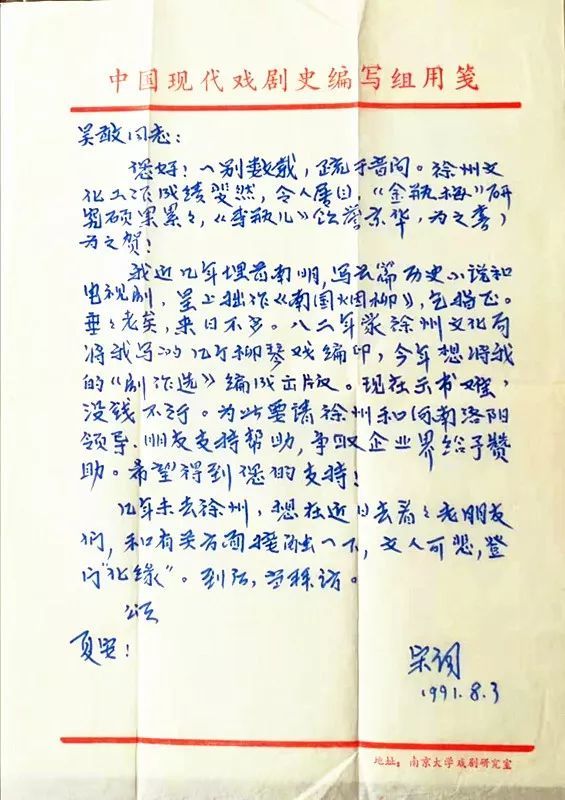 中国现代戏剧史编写组用笺
吴敢同志：
您好！一别数载，疏于音问。徐州文
化工作成绩斐然，令人属目，《金瓶梅》研
究硕果累々，《李瓶儿》饮誉京华，为之喜，
为之贺！
我近几年埋首南明，写云篇历史小说和
电视剧，呈上拙作《南国烟柳》，乞指正。
垂々老矣，来日不多。八二年蒙徐州文化局
将我写的几个柳琴戏编印，今年想将我
的《剧作选》编成出版。现在出书难，
没钱不行。为此要请徐州和河南洛阳
领导、朋友支持帮助，争取企业界给予赞
助。希望得到您的支持！
几年未去徐州，想在近日去看々老朋友
们，和有关方面接触一下，文人可悲，登
门“化缘”。到后，当拜访。
颂
夏安！
宋词
1991.8.3
地址：南京大学戏剧研究室